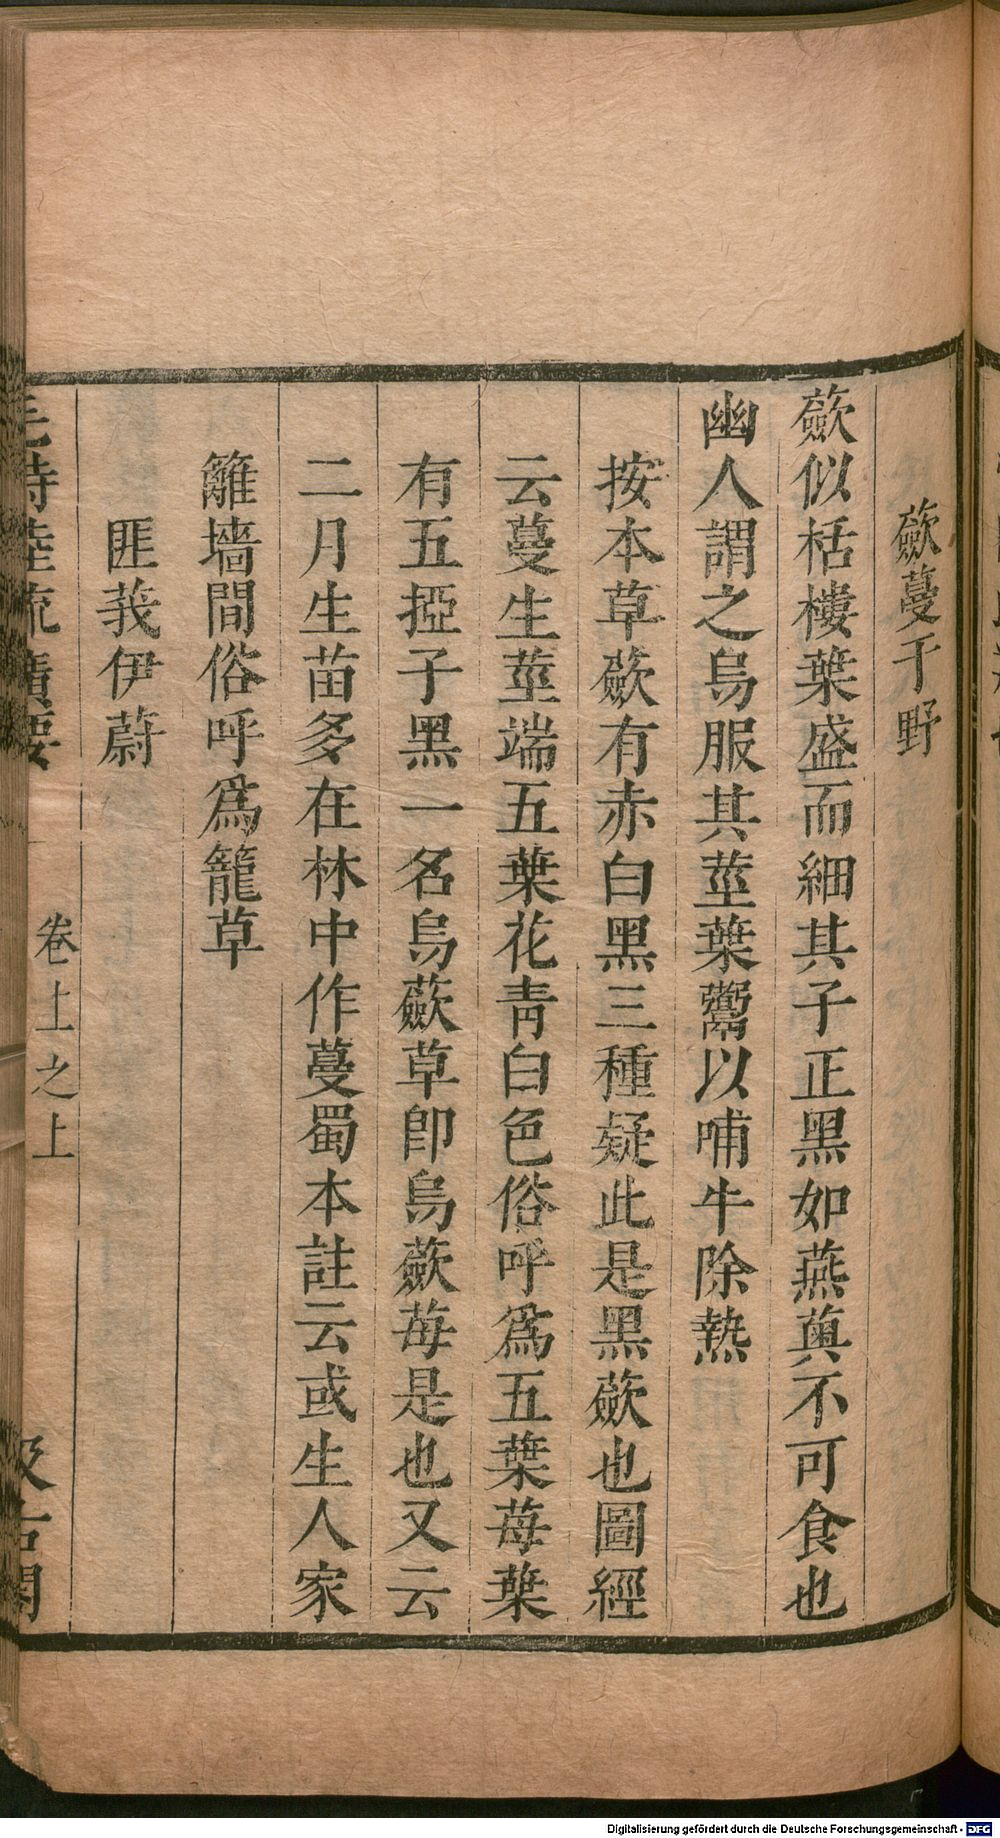 蘞蔓于野
蘞似栝樓葉盛而細其子正黑如燕薁不可食也
幽人謂之烏服其莖葉鬻以哺牛除熱
按本草蘞有赤白黑三種疑此是黑蘞也圖經
云蔓生莖端五葉花青白色俗呼爲五葉莓葉
有五椏子黑一名烏蘞草卽烏蘞莓是也又云
二月生苗多在林中作蔓蜀本註云或生人家
籬墻間俗呼爲籠草
匪莪伊蔚
毛詩陸疏廣要 卷上之上 汲古閣
Digitalisierung gefördert durch die Deutsche Forschungsgemeinschaft - DFG